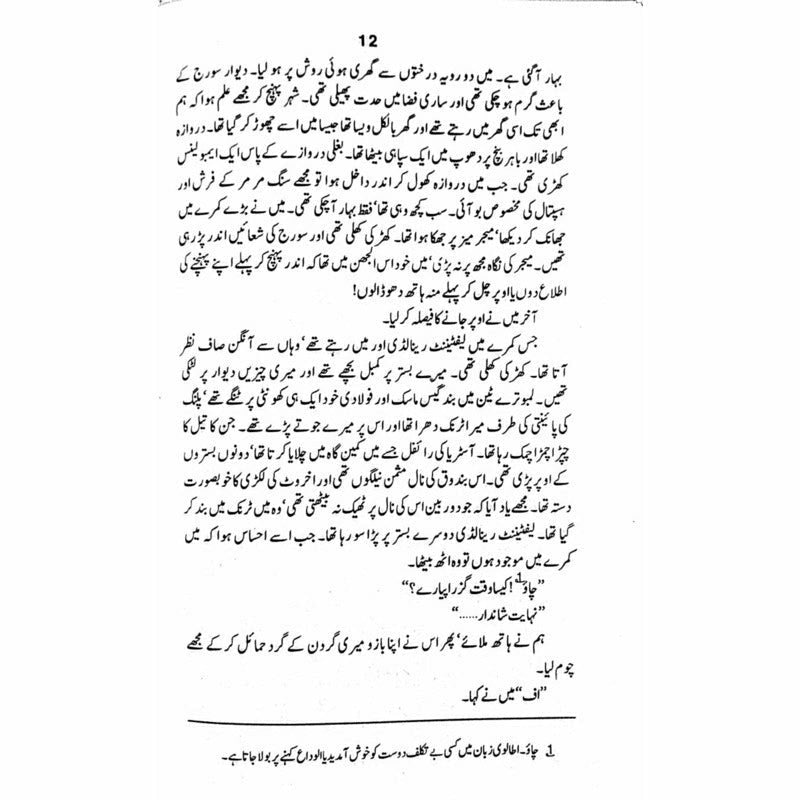 12
بہار آگئی ہے۔ میں دو رویہ درختوں سے گھری ہوئی روش پر ہو لیا۔ دیوار سورج کے
باعث گرم ہو چکی تھی اور ساری فضا میں حدت پھیلی تھی۔ شہر پہنچ کر مجھے علم ہوا کہ ہم
ابھی تک اسی گھر میں رہتے تھے اور گھر بالکل ویسا تھا جیسا میں اسے چھوڑ کر گیا تھا۔ دروازہ
کھلا تھا اور باہر بنچ پر دھوپ میں ایک سپاہی بیٹھا تھا۔ بغلی دروازے کے پاس ایک ایمبولینس
کھڑی تھی۔ جب میں دروازہ کھول کر اندر داخل ہوا تو مجھے سنگ مرمر کے فرش اور
ہسپتال کی مخصوص بو آئی۔ سب کچھ وہی تھا‘ فقط بہار آچکی تھی۔ میں نے بڑے کمرے میں
جھانک کر دیکھا‘ میجر میز پر جھکا ہوا تھا۔ کھڑکی کھلی تھی اور سورج کی شعائیں اندر پڑ رہی
تھیں۔ میجر کی نگاہ مجھ پر نہ پڑی‘ میں خود اس الجھن میں تھا کہ اندر پہنچ کر پہلے اپنے پہنچنے کی
اطلاع دوں یا اوپر چل کر پہلے منہ ہاتھ دھو ڈالوں!
آخر میں نے اوپر جانے کا فیصلہ کر لیا۔
جس کمرے میں لیفٹیننٹ رینالڈی اور میں رہتے تھے‘ وہاں سے آنگن صاف نظر
آتا تھا۔ کھڑکی کھلی تھی۔ میرے بستر پر کمبل بچھے تھے اور میری چیزیں دیوار پر لٹکی
تھیں۔ لمبوترے ٹین میں بند گیس ماسک اور فولادی خود ایک ہی کھونٹی پر ٹنگے تھے‘ پلنگ
کی پائینتی کی طرف میرا ٹرنک دھرا تھا اور اس پر میرے جوتے پڑے تھے۔ جن کا تیل کا
چپڑا چمڑا چمک رہا تھا۔ آسٹریا کی رائفل جسے میں کمین گاہ میں چلایا کرتا تھا‘ دونوں بستروں
کے اوپر پڑی تھی۔ اس بندوق کی نال مثمن نیلگوں تھی اور اخروٹ کی لکڑی کا خوبصورت
دستہ تھا۔ مجھے یاد آیا کہ جو دوربین اس کی نال پر ٹھیک نہ بیٹھتی تھی‘ وہ میں ٹرنک میں بند کر
گیا تھا۔ لیفٹیننٹ رینالڈی دوسرے بستر پر پڑا سو رہا تھا۔ جب اسے احساس ہوا کہ میں
کمرے میں موجود ہوں تو وہ اٹھ بیٹھا۔
”چاؤ1! کیسا وقت گزرا پیارے؟“
”نہایت شاندار......“
ہم نے ہاتھ ملائے‘ پھر اس نے اپنا بازو میری گردن کے گرد حمائل کر کے مجھے
چوم لیا۔
”اف“ میں نے کہا۔
1 چاؤ۔ اطالوی زبان میں کسی بے تکلف دوست کو خوش آمدید یا الوداع کہنے پر بولا جاتا ہے۔